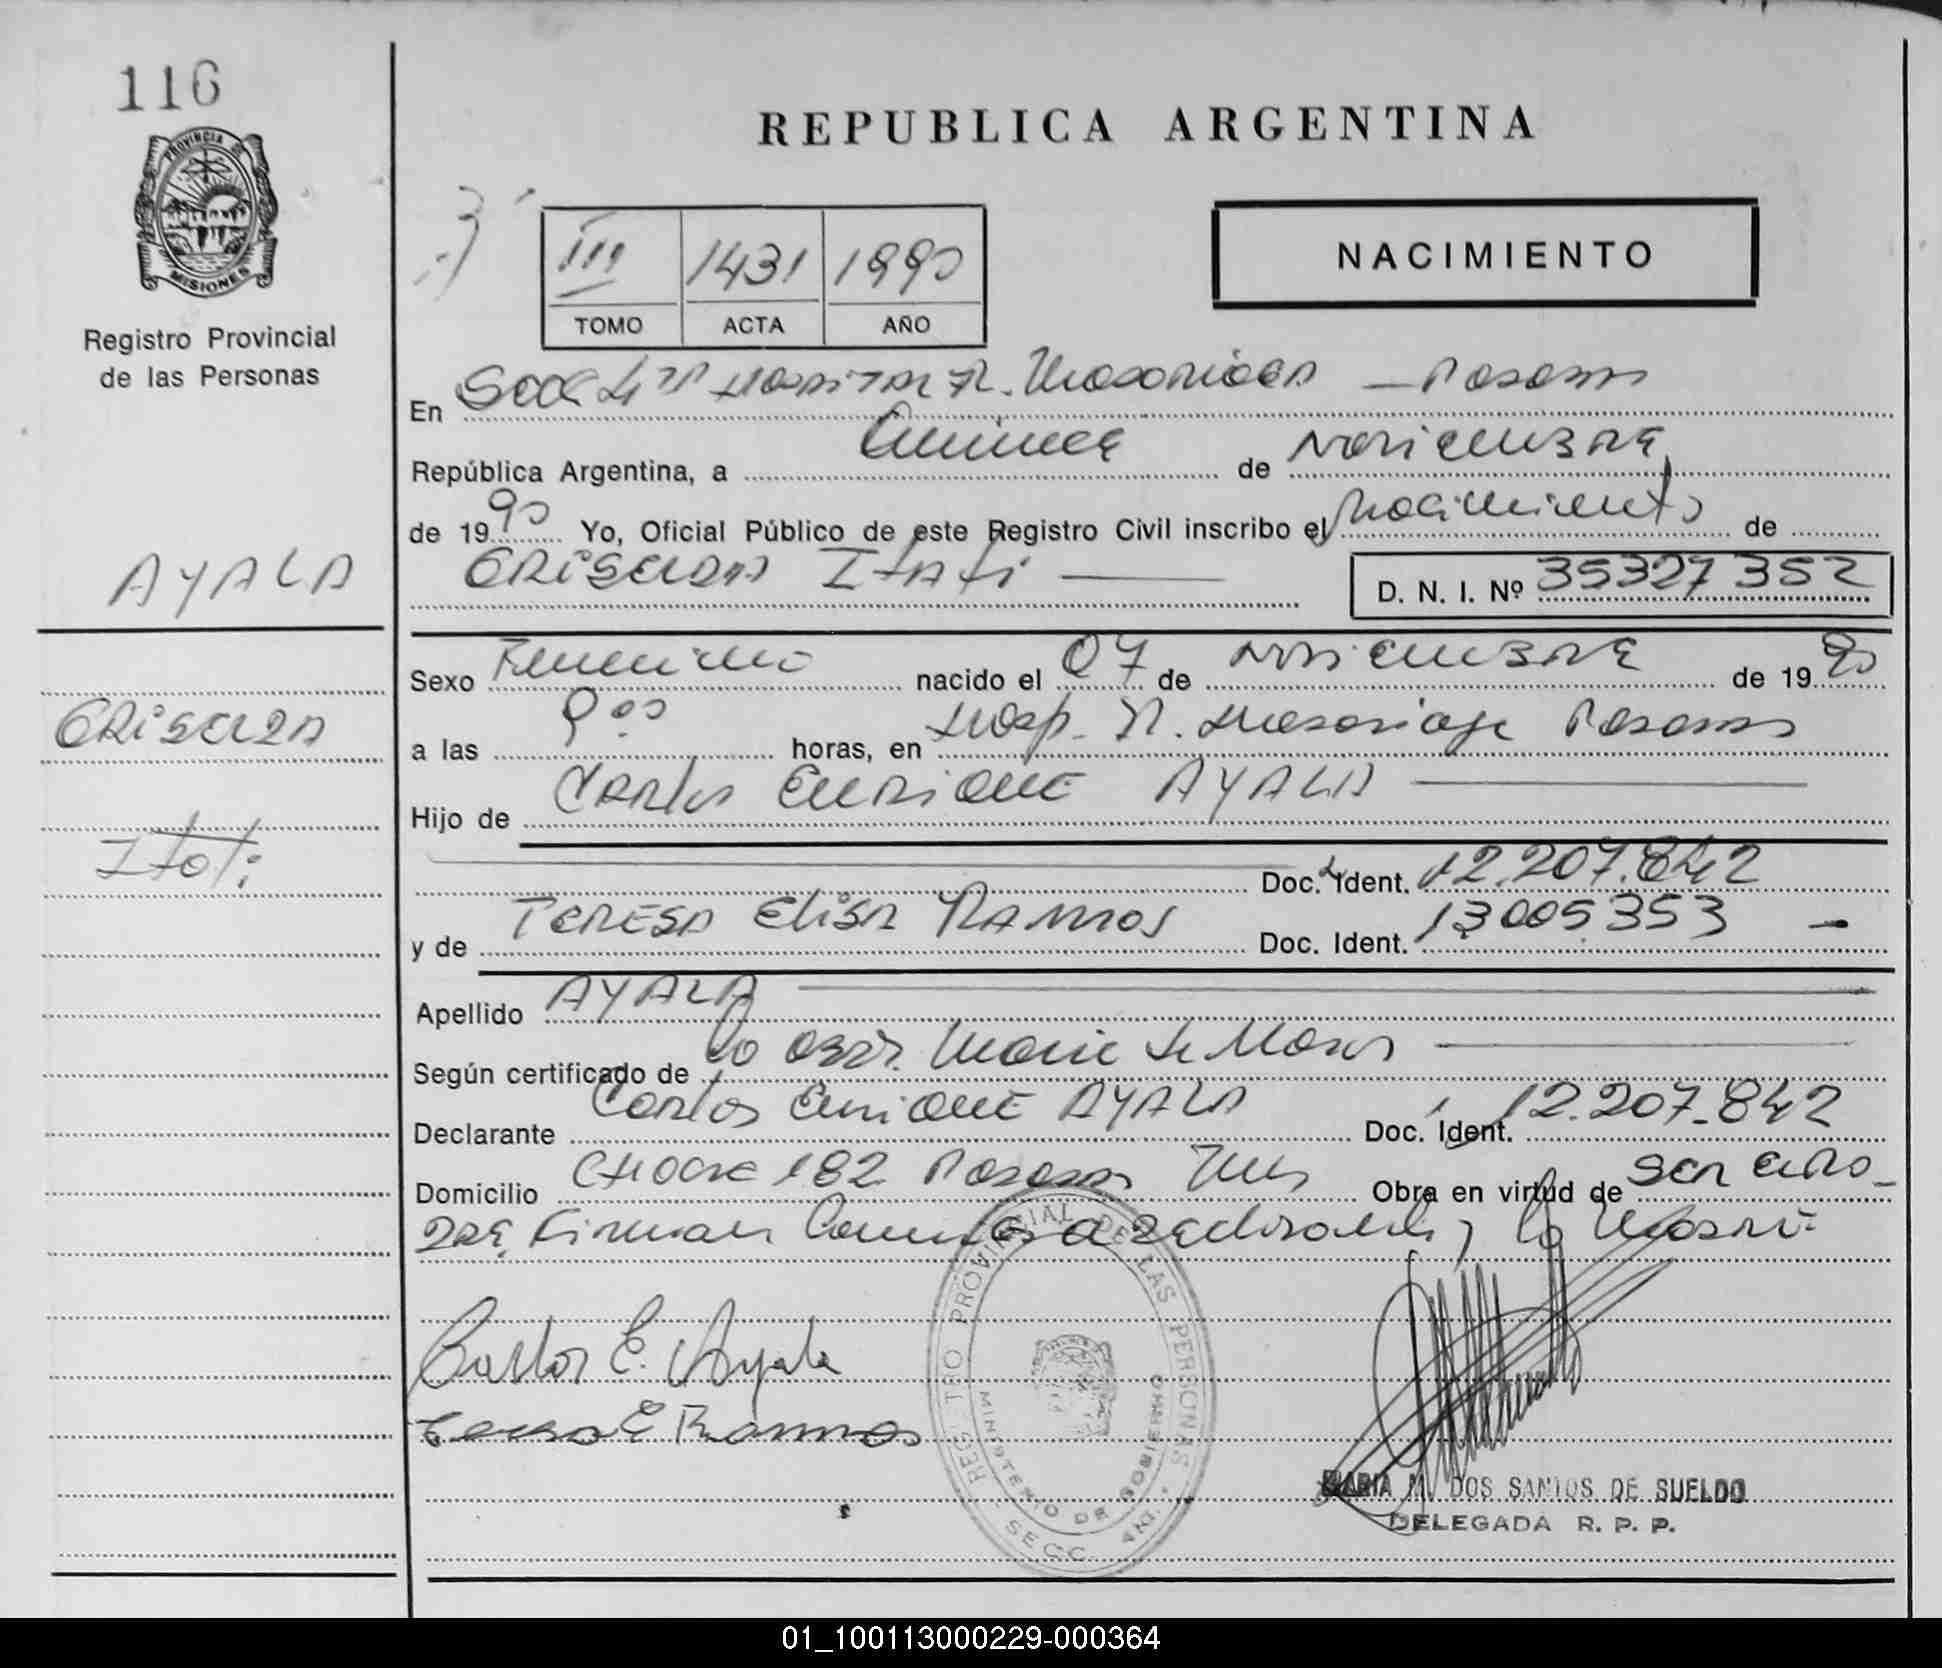 116
PROVINCIA DE
MISIONES
Registro Provincial
de las Personas
REPUBLICA ARGENTINA
III 1431 1990
TOMO ACTA AÑO
NACIMIENTO
En Secc 4ta Hospital R. Madariaga — Posadas
República Argentina, a Quince de Noviembre
de 1990 Yo, Oficial Público de este Registro Civil inscribo el Nacimiento de
GRISELDA Itati
D. N. I. Nº 35327352
AYALA
GRISELDA
Itati
Sexo Femenino nacido el 07 de Noviembre de 1990
a las 9 00 horas, en Hosp. R. Madariaga Posadas
Hijo de Carlos Enrique AYALA
Doc. Ident. 12.207.842
y de TERESA Elisa RAMOS Doc. Ident. 13005353 -
Apellido AYALA
Según certificado de la Obst. Maria
Declarante Carlos Enrique AYALA Doc. Ident. 12.207.842
Domicilio 182 Posadas Obra en virtud de ser
Firman
Carlos E. Ayala
Teresa E Ramos
REGISTRO PROVINCIAL DE LAS PERSONAS
MINISTERIO DE GOBIERNO
SECC. 4ta.
MARIA M. DOS SANTOS DE SUELDO
DELEGADA R. P. P.
01_100113000229-000364